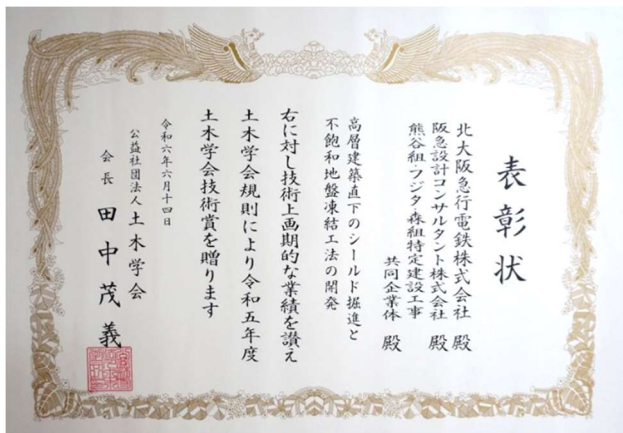 表彰状
北大阪急行電鉄株式会社 殿
阪急設計コンサルタント株式会社 殿
熊谷組・フジタ・森組特定建設工事
共同企業体 殿
高層建築直下のシールド掘進と
不飽和地盤凍結工法の開発
右に対し技術上画期的な業績を讃え
土木学会規則により令和五年度
土木学会技術賞を贈ります
令和六年六月十四日
公益社団法人 土木学会
会長 田中茂義